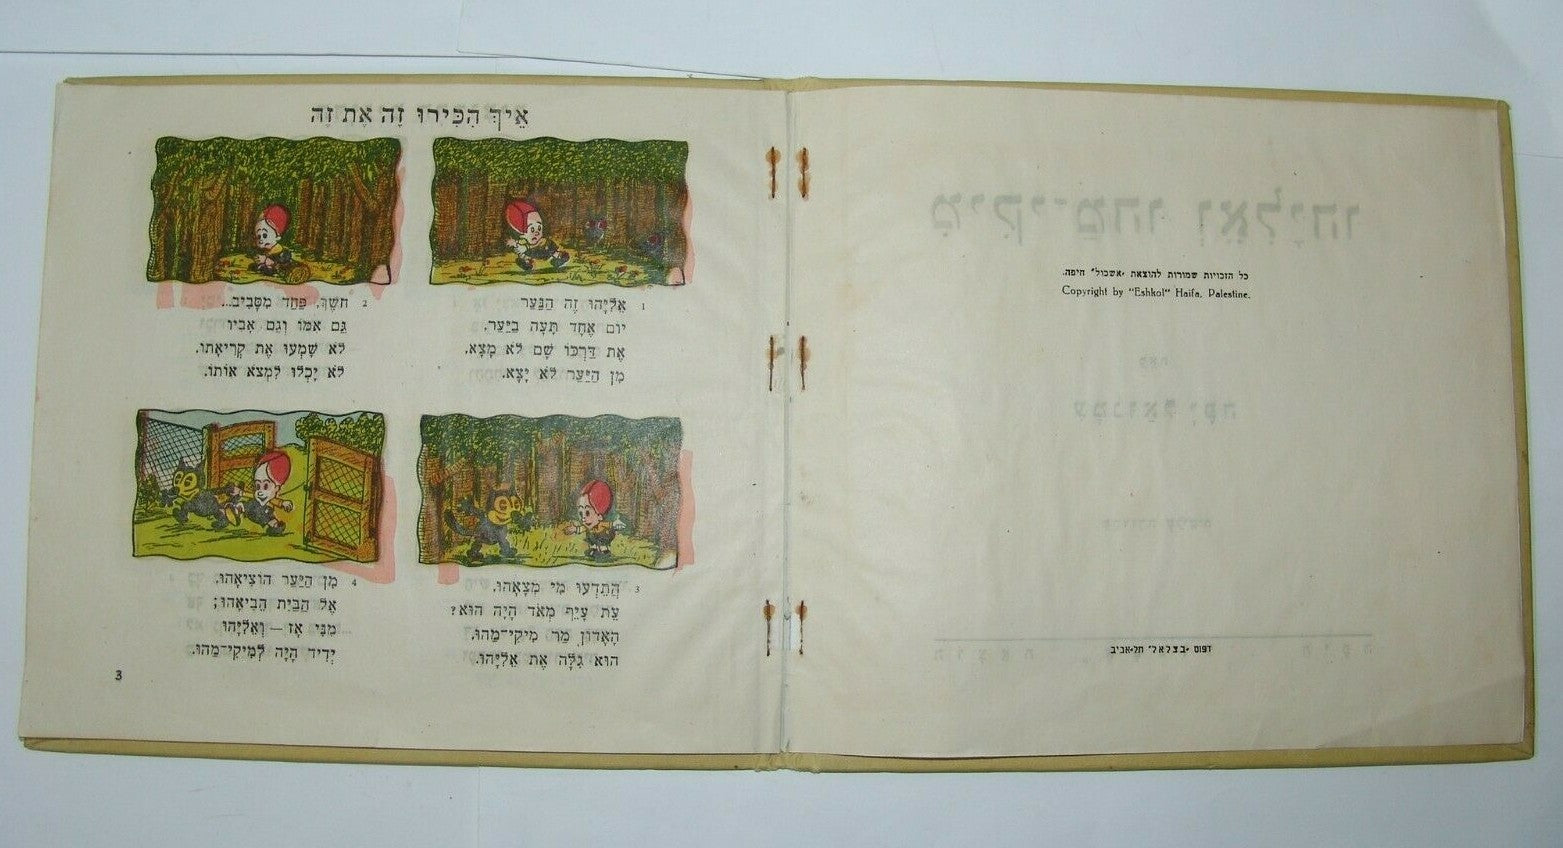 כל הזכויות שמורות להוצאת „אשכול" חיפה.
Copyright by "Eshkol" Haifa, Palestine.
דפוס „בצלאל" תל-אביב
אֵיךְ הִכִּירוּ זֶה אֶת זֶה
1 אֵלִיָּהוּ זֶה הַנַּעַר
יוֹם אֶחָד תָּעָה בַיַּעַר.
אֶת דַּרְכּוֹ שָׁם לֹא מָצָא,
מִן הַיַּעַר לֹא יָצָא.
2 חֹשֶׁךְ, פַּחַד מִסָּבִיב...
גַּם אִמּוֹ וְגַם אָבִיו
לֹא שָׁמְעוּ אֶת קְרִיאָתוֹ.
לֹא יָכְלוּ לִמְצֹא אוֹתוֹ.
3 הֲתֵדְעוּ מִי מְצָאָהוּ,
עֵת עָיֵף מְאֹד הָיָה הוּא?
הָאָדוֹן מַר מִיקִי־מַהוּ,
הוּא גִּלָּה אֶת אֵלִיָּהוּ.
4 מִן הַיַּעַר הוֹצִיאָהוּ,
אֶל הַבַּיִת הֱבִיאָהוּ;
מִנִּי אָז — וְאֵלִיָּהוּ
יְדִיד הָיָה לְמִיקִי־מַהוּ.
3